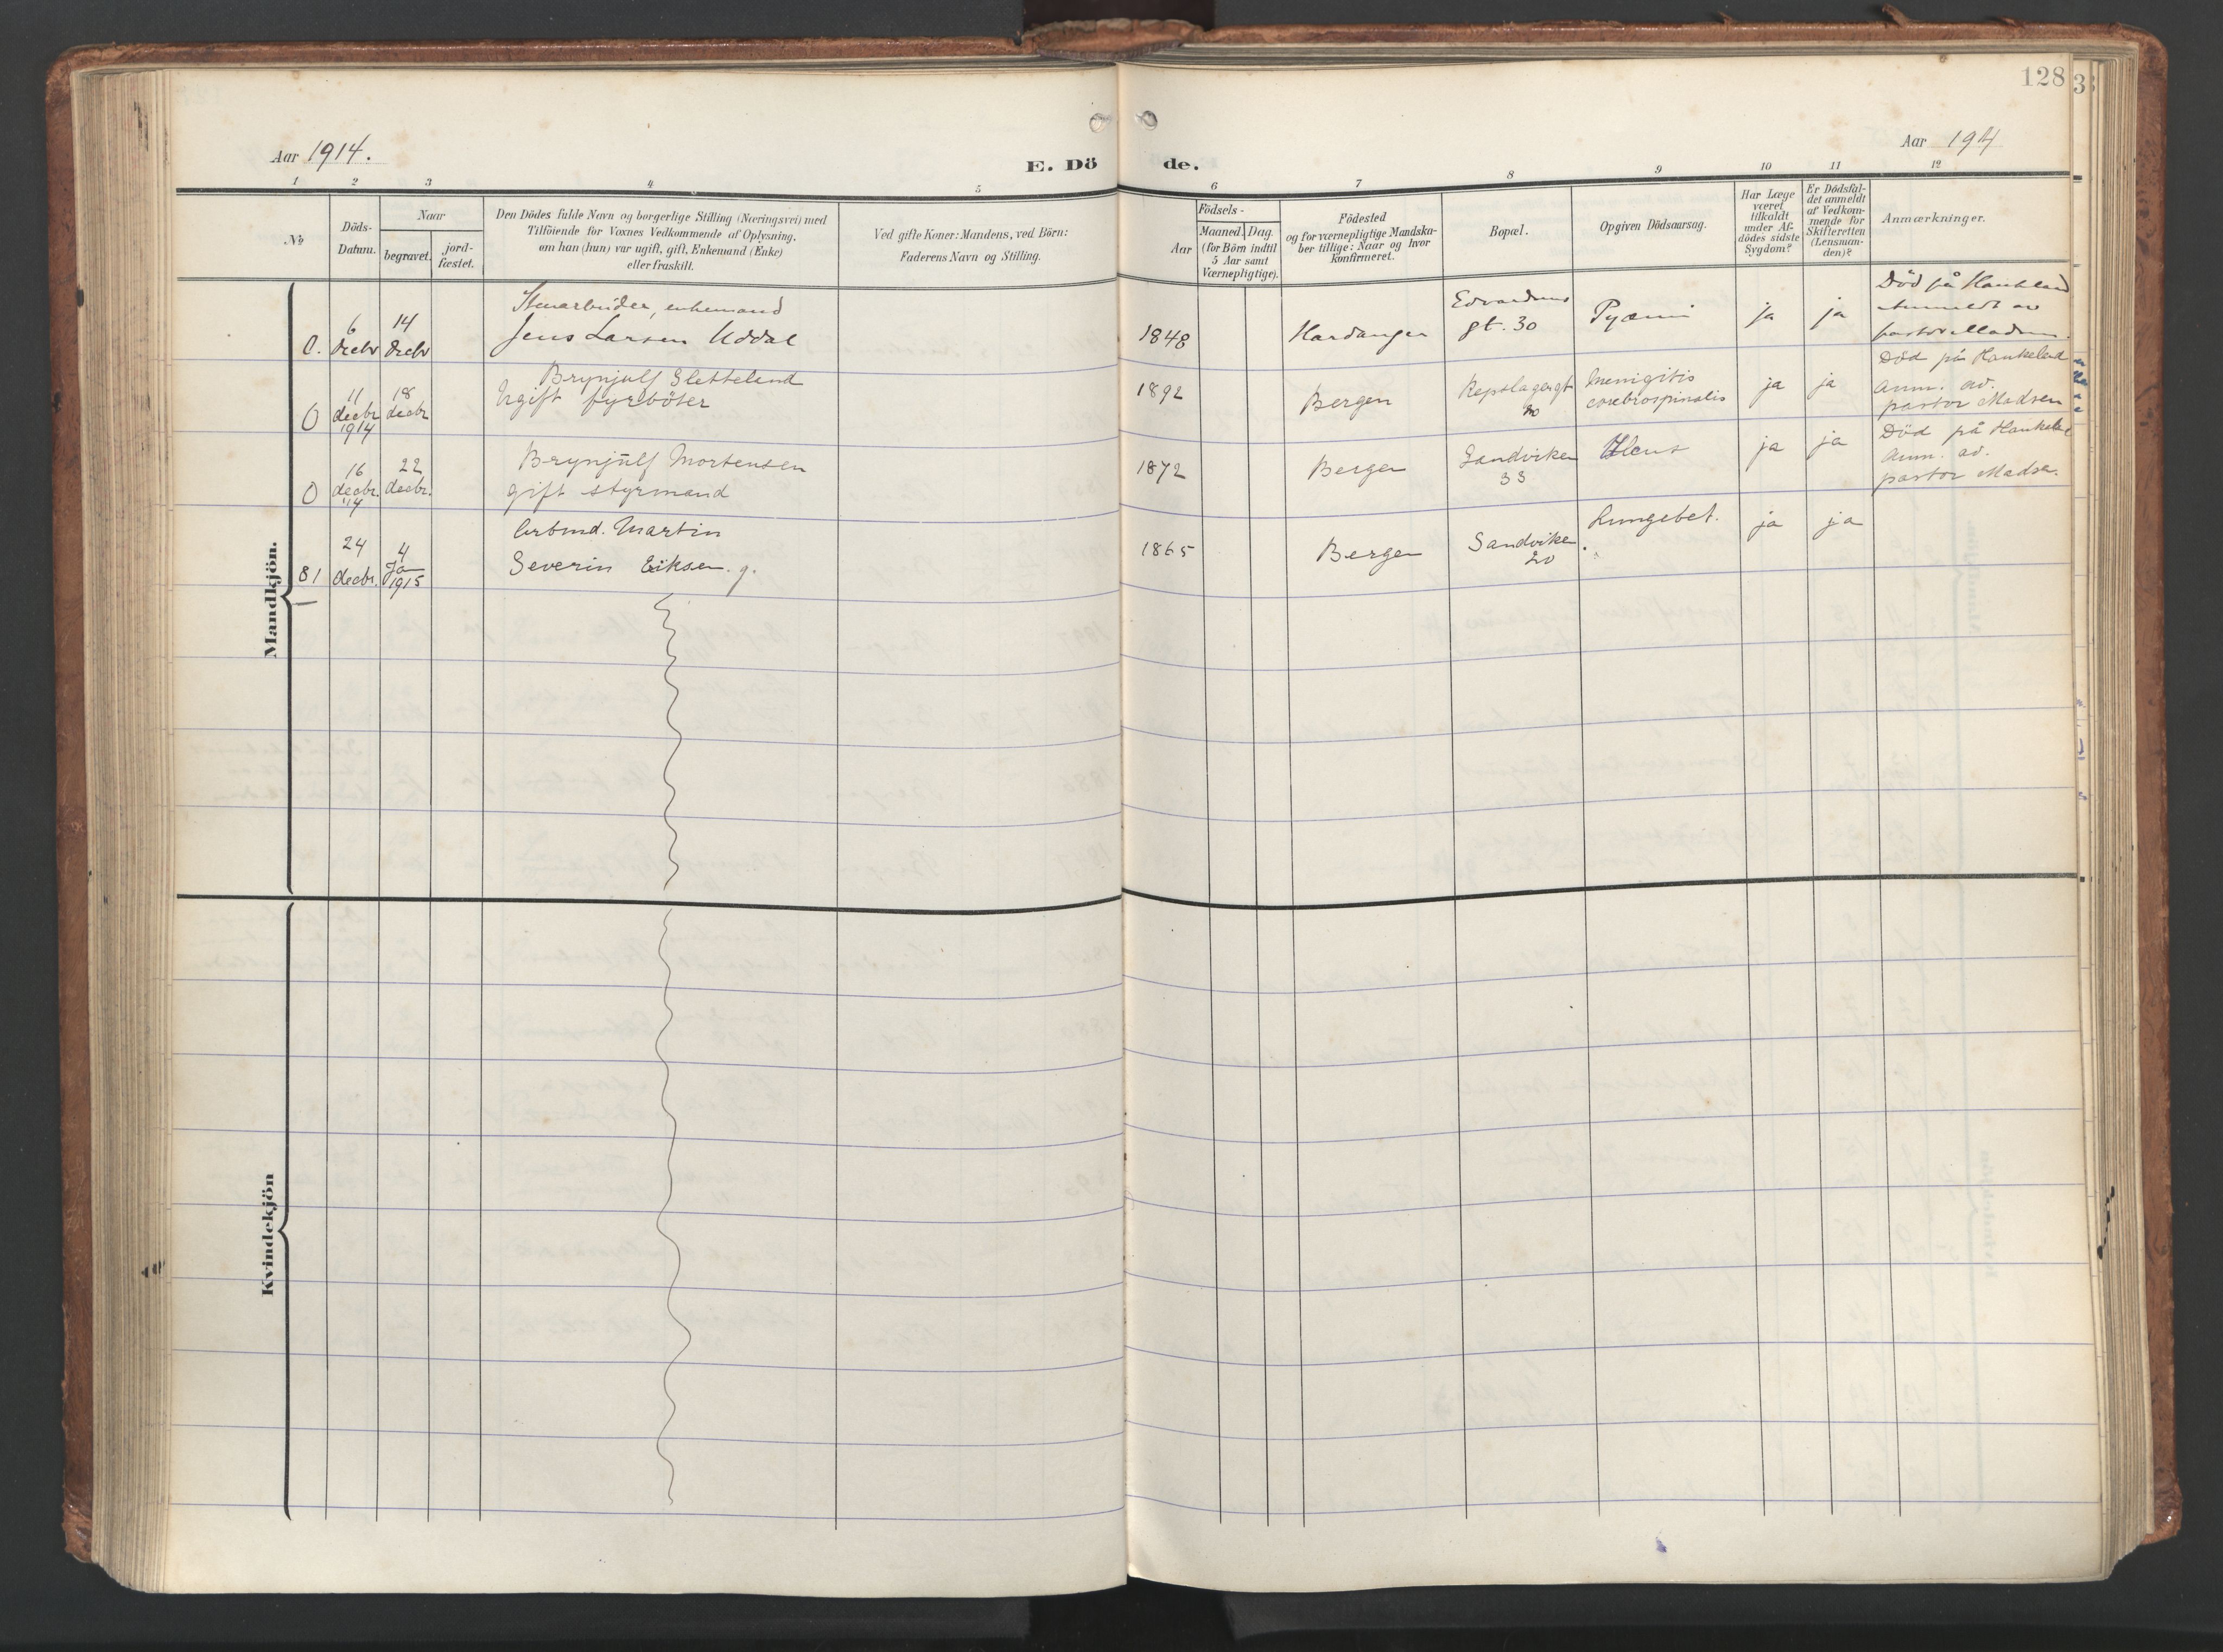 128
Aar 1914.
E. Dö
de.
Aar 1914
1 2 3 4 5
6 7 8 9 10 11 12
No
Döds-
Datum.
Naar
begravet.
jord-
fæstet.
Den Dödes fulde Navn og borgerlige Stilling (Næringsvei) med
Tilföiende for Voxnes Vedkommende af Oplysning,
om han (hun) var ugift, gift, Enkemand (Enke)
eller fraskilt.
Ved gifte Koner: Mandens, ved Börn:
Faderens Navn og Stilling.
Födsels-
Aar
Maaned. Dag.
(for Börn indtil
5 Aar samt
Værnepligtige).
Födested
og for værnepligtige Mandska-
ber tillige: Naar og hvor
konfirmeret.
Bopæl.
Opgiven Dödsaarsag.
Har Læge
været
tilkaldt
under Af-
dödes sidste
Sygdom?
Er Dödsfal-
det anmeldt
af Vedkom-
mende for
Skifteretten
(Lensman-
den)?
Anmærkninger.
Mandkjön.
0.
6
decbr
14
decbr
Stenarbeider, enkemand
Jens Larsen Uddal
1848
Hardanger
Edvardens
gt. 30
Pyæmi
ja
ja
Död på Haukeland
Anmeldt av
pastor Madsen.
0
11
decbr
1914
18
decbr
Brynjulf Sletteland
Ugift fyrböter
1892
Bergen
Repslagergt
20
Menigitis
cerebrospinalis
ja
ja
Död på Haukeland
anm. av.
pastor Madsen
0
16
decbr.
14
22
decbr.
Brynjulf Mortensen
gift styrmand
1872
Bergen
Sandviken
33
Ulcus
ja
ja
Död på Haukeland
anm. av.
pastor Madsen.
81
24
decbr.
4
Ja
1915
Arbmd. Martin
Severin Eiksen. g.
1865
Bergen
Sandviken
20
Lungebet.
ja
ja
Kvindekjön